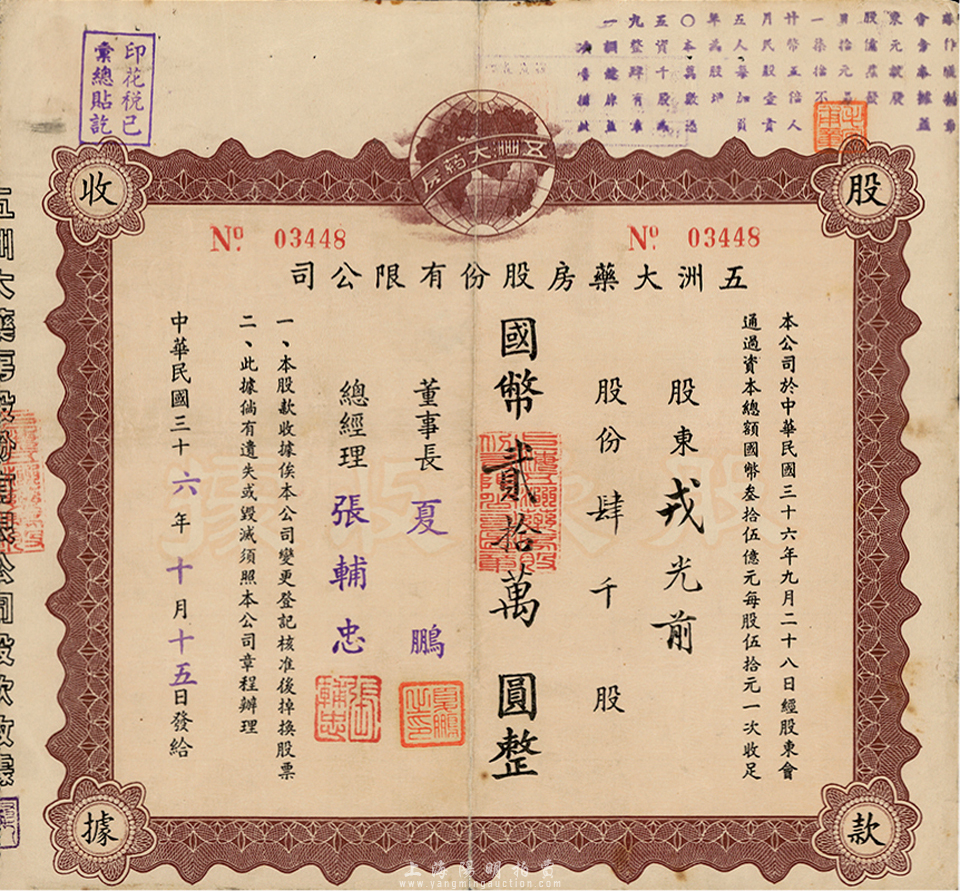 印花稅已
彙總貼訖
股
收
款
據
五洲大葯房
Nº 03448
Nº 03448
五洲大藥房股份有限公司
本公司於中華民國三十六年九月二十八日經股東會
通過資本總額國幣叁拾伍億元每股伍拾元一次收足
股東 戎光前
股份 肆千 股
國幣貳拾萬圓整
董事長 夏鵬
總經理 張輔忠
一、本股款收據俟本公司變更登記核准後掉換股票
二、此據倘有遺失或毀滅須照本公司章程辦理
中華民國三十六年十月十五日發給
股款收據
夏鵬之印
張輔忠
五洲大藥房股份有限公司股款收據
上海陽明拍賣
www.yangmingauction.com